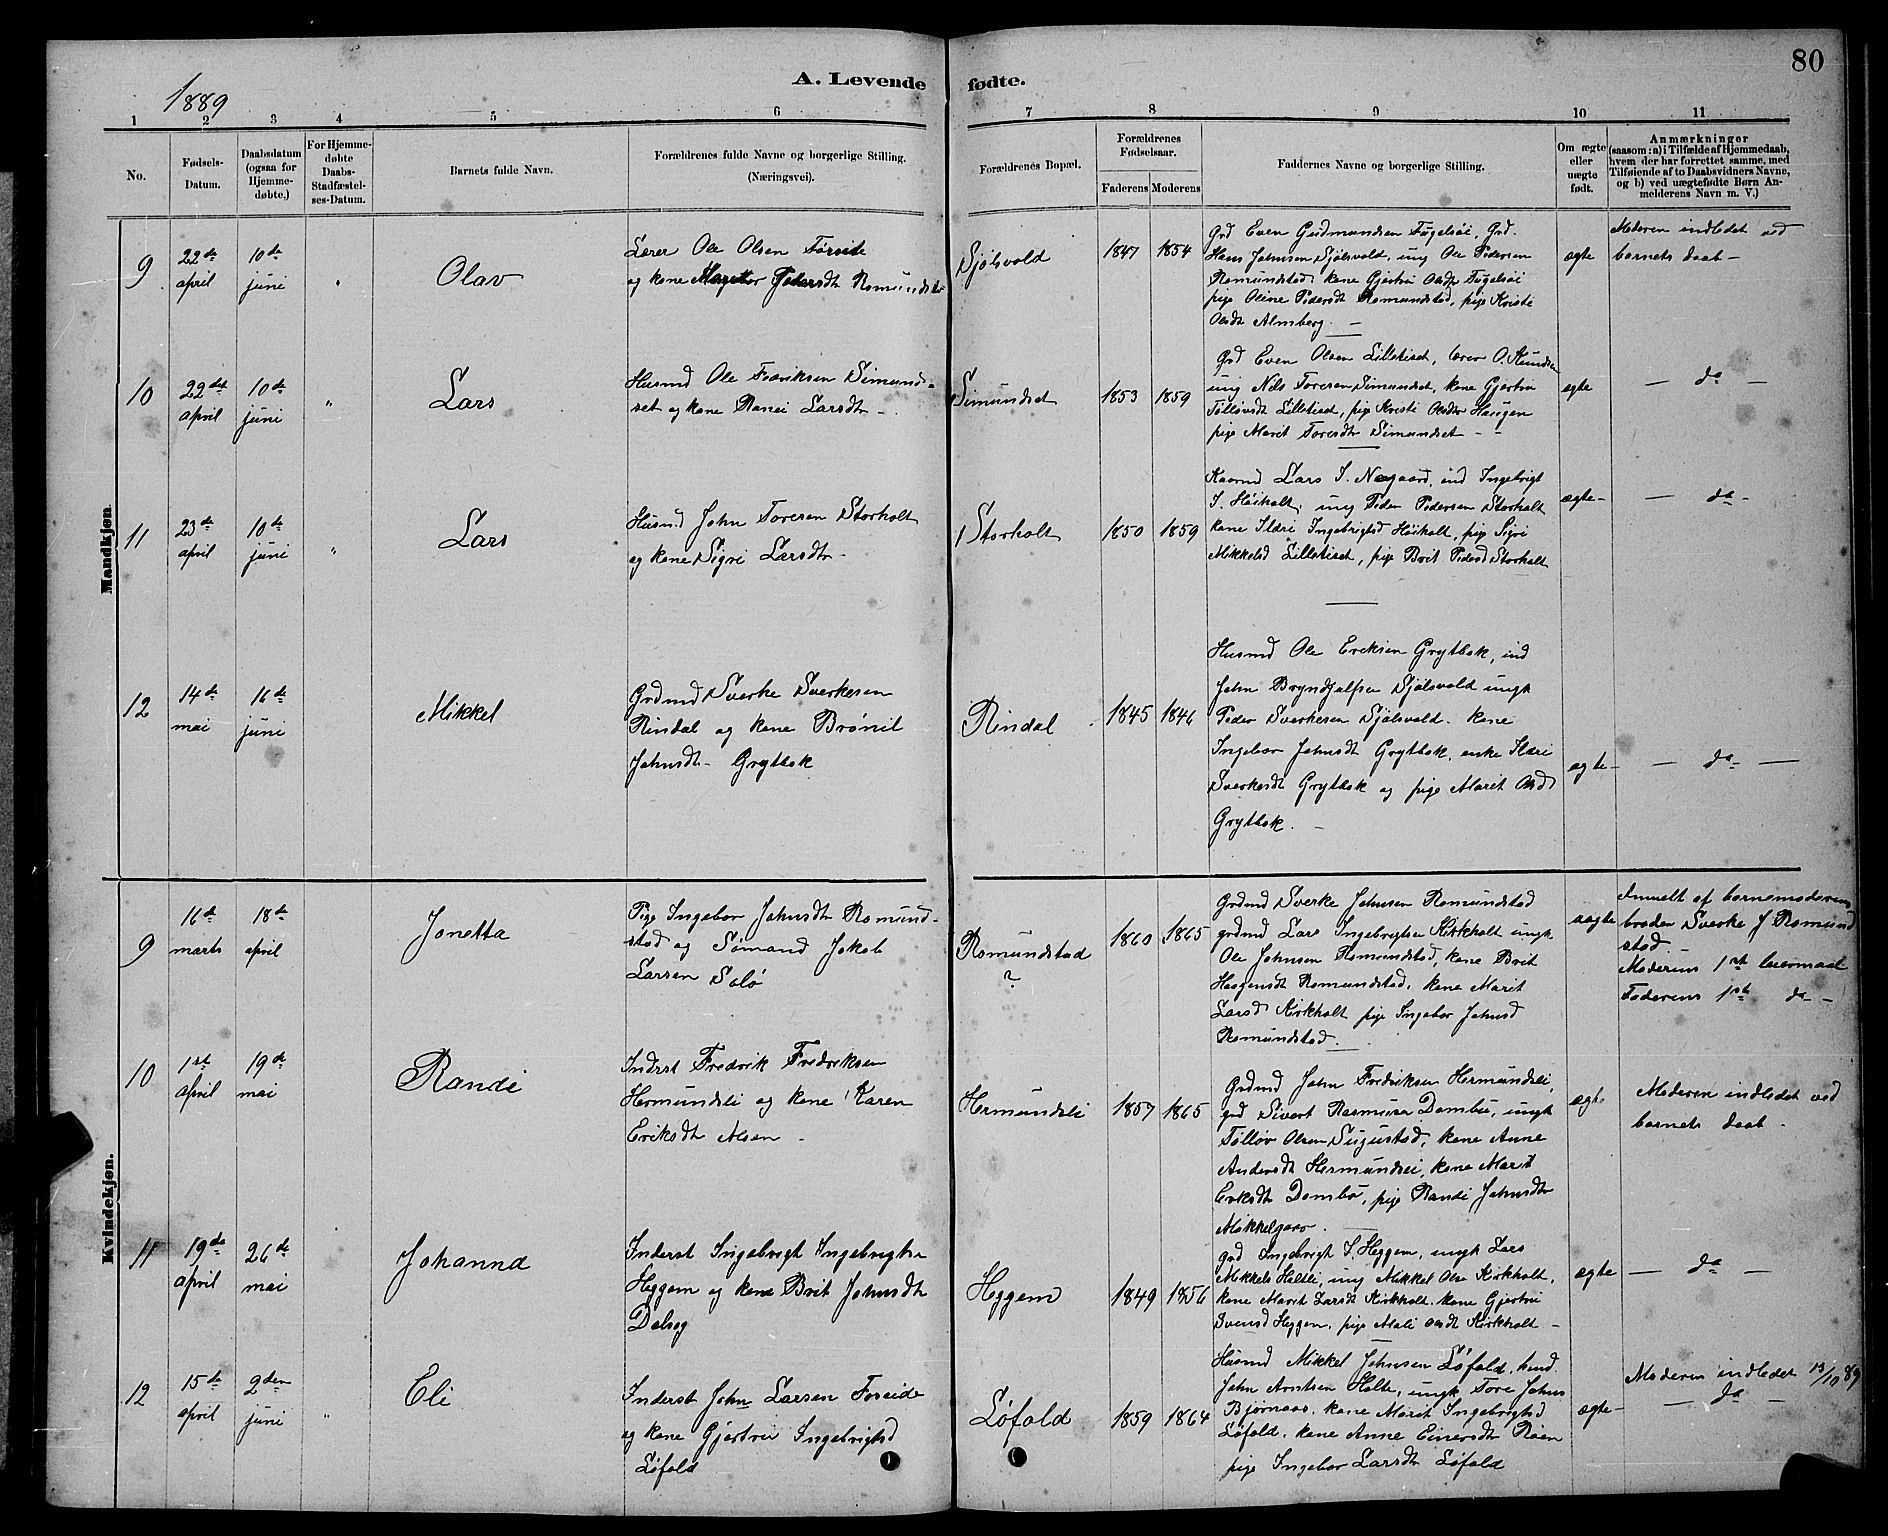 80
A. Levende fødte.
1889
1 2 3 4 5 6 7 8 9 10 11
No.
Fødsels-
Datum.
Daabsdatum
(ogsaa for
Hjemme-
døbte,)
For Hjemme-
døbte
Daabs-
Stadfæstel-
ses-Datum.
Barnets fulde Navn.
Forældrenes fulde Navne og borgerlige Stilling.
(Næringsvei).
Forældrenes Bopæl.
Forældrenes
Fødselsaar.
Faderens Moderens
Faddernes Navne og borgerlige Stilling.
Om ægte
eller
uægte
født.
Anmærkninger
(saasom: a) i Tilfælde af Hjemmedaab,
hvem der har forrettet samme, med
Tilføiende af to Daabsvidners Navne,
og b) ved uægtefødte Børn An-
melderens Navn m. V.)
Mandkjøn.
9
22de
april
10de
juni
Olav
Lærer Ole Olsen Forseide
og kone Pedersdt Romundsta
Sjølsvold
1847 1854
Grd Even Gudmundsen Fugelsøi, Grd.
Hans Johnsen Sjølsvold, ung Ole Pedersen
Romundstad, kone Gjertru Olsdt Fugelsøi
pige Oline Pedersdt Romundstad, pige Kristi
Olsdt Almberg. —
ægte
Moderen indledet ved
barnets daab —
10
22det
april
10de
juni
"
Lars
Husmd Ole Fredriksen Simund-
set og kone Ranei Larsdtr —
Simundset
1853 1859
Grd Even Olsen Lilletiset, lærer O. Knudsen
ung Nils Toresen Simundset, kone Gjertru
Tølløvdt Lilletiset, pige Kristi Olsdtr Haugen
pige Marit Toresdtr Simundset — -
ægte
— da —
11
23de
april
10de
juni
"
Lars
Husmd John Toresen Storholt
og kone Sigri Larsdtr —
Storholt
1850 1859
Kaarmd Lars I. Nergaard, ind Ingebrigt
I. Høiholt, ung Peder Pedersen Storholt
kone Ildri Ingebrigtsd Høiholt, pige Sigri
Mikkelsd Lilletiset, pige Brit Pedersd Storholt
ægte-
— da —
12
14de
mai
16de
juni
Mikkel
Grdmd Sverke Sverkesen
Rindal og kone Brønil
Johnsdt — Grytbak
Rindal
1845 1846
Husmd Ole Eriksen Grytbak, ind
John Bryndjulfsen Sjølsvold ungk
Peder Sverkesen Sjølsvold. kone
Ingebor Johnsdt Grytbak, enke Ildri
Sverkesdt Grytbak og pige Marit Olsd
Grytbak. —
ægte-
— da —
Kvindekjøn.
9
16de
marts
18de
april
Jonetta
Pige Ingebor Johnsdtr Romund-
stad og Sømand Jakob
Larsen Solø
Romundstad
?
1860 1865
Grdmd Sverke Johnsen Romundstad
grdmd Lars Ingebrigtsen Kirkholt ungk
Ole Johnsen Romundstad, kone Brit
Haagensdt Romundstad, kone Marit
Larsd Kirkholt pige Ingebor Johnsd
Romundstad. —
uægte
Anmelt af barnemoderens
broder Sverke J Romund
stad
Moderens 1ste leiermaal
Faderens 1ste da —
10
1st
april
19de
mai
Randi
Inderst Fredrik Fredriksen
Hermundsli og kone Karen
Eriksdt Alsen —
Hermundsli
1857 1865
Grdmd John Fredriksen Hermundsli,
grd Sivert Rasmusen Dombu, ungk
Tølløv Olsen Sugustad, kone Anne
Andersdt Hermundsli, kone Marit
Eriksdt Dombu, pige Randi Johnsdtr
Mikkelgaar.
ægte
Moderen indledet ved
barnets daab -
11
19de
april
26de
mai
Johanna
Inderst Ingebrigt Ingebrigtsen
Heggem og kone Brit Johnsdt
Dalseg
Heggem
1849 1856
grd Ingebrigt I. Heggem, ungk Lars
Mikkels Holtli, ung Mikkel Olsen Kirkholt,
kone Marit Larsdt Kirkholt, kone Gjertru
Svensd Heggem, pige Mali Olsdt Kirkholt —
ægte
— da —
12
15de
april
2den
juni
"
Eli
Inderst John Larsen Forseide
og kone Gjertru Ingebrigtsd
Løfald
Løfald
1859 1864
Husmd Mikkel Johnsen Løfald,
John Arntsen Holte, ungk Tore Johns
Bjørnaas, kone Marit Ingebrigtsd
Løfald, kone Anne Einersdtr Røen
pige Ingebor Larsdtr Løfald
ægte-
Moderen indledet 13/10 89
— da —